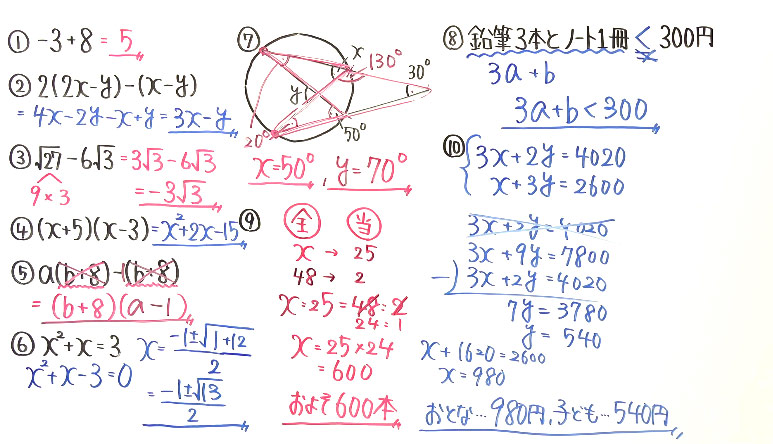 ① -3+8 = 5
② 2(2x-y)-(x-y)
= 4x-2y-x+y = 3x-y
③ √27 - 6√3 = 3√3 - 6√3
9×3
= -3√3
④ (x+5)(x-3) = x²+2x-15
⑤ a(b+8)-(b+8)
= (b+8)(a-1)
⑥ x²+x=3
x²+x-3=0
x = (-1±√1+12)/2
= (-1±√13)/2
⑦
x
130°
30°
y
20°
50°
x=50°, y=70°
⑧ 鉛筆3本とノート1冊 < 300円
3a+b
3a+b<300
⑨
全 当
x → 25
48 → 2
x:25 = 48:2
24:1
x = 25×24
= 600
およそ600本
⑩ 3x+2y=4020
x+3y=2600
3x+2y=4020
3x+9y=7800
-) 3x+2y=4020
7y=3780
y=540
x+1620=2600
x=980
おとな…980円, 子ども…540円